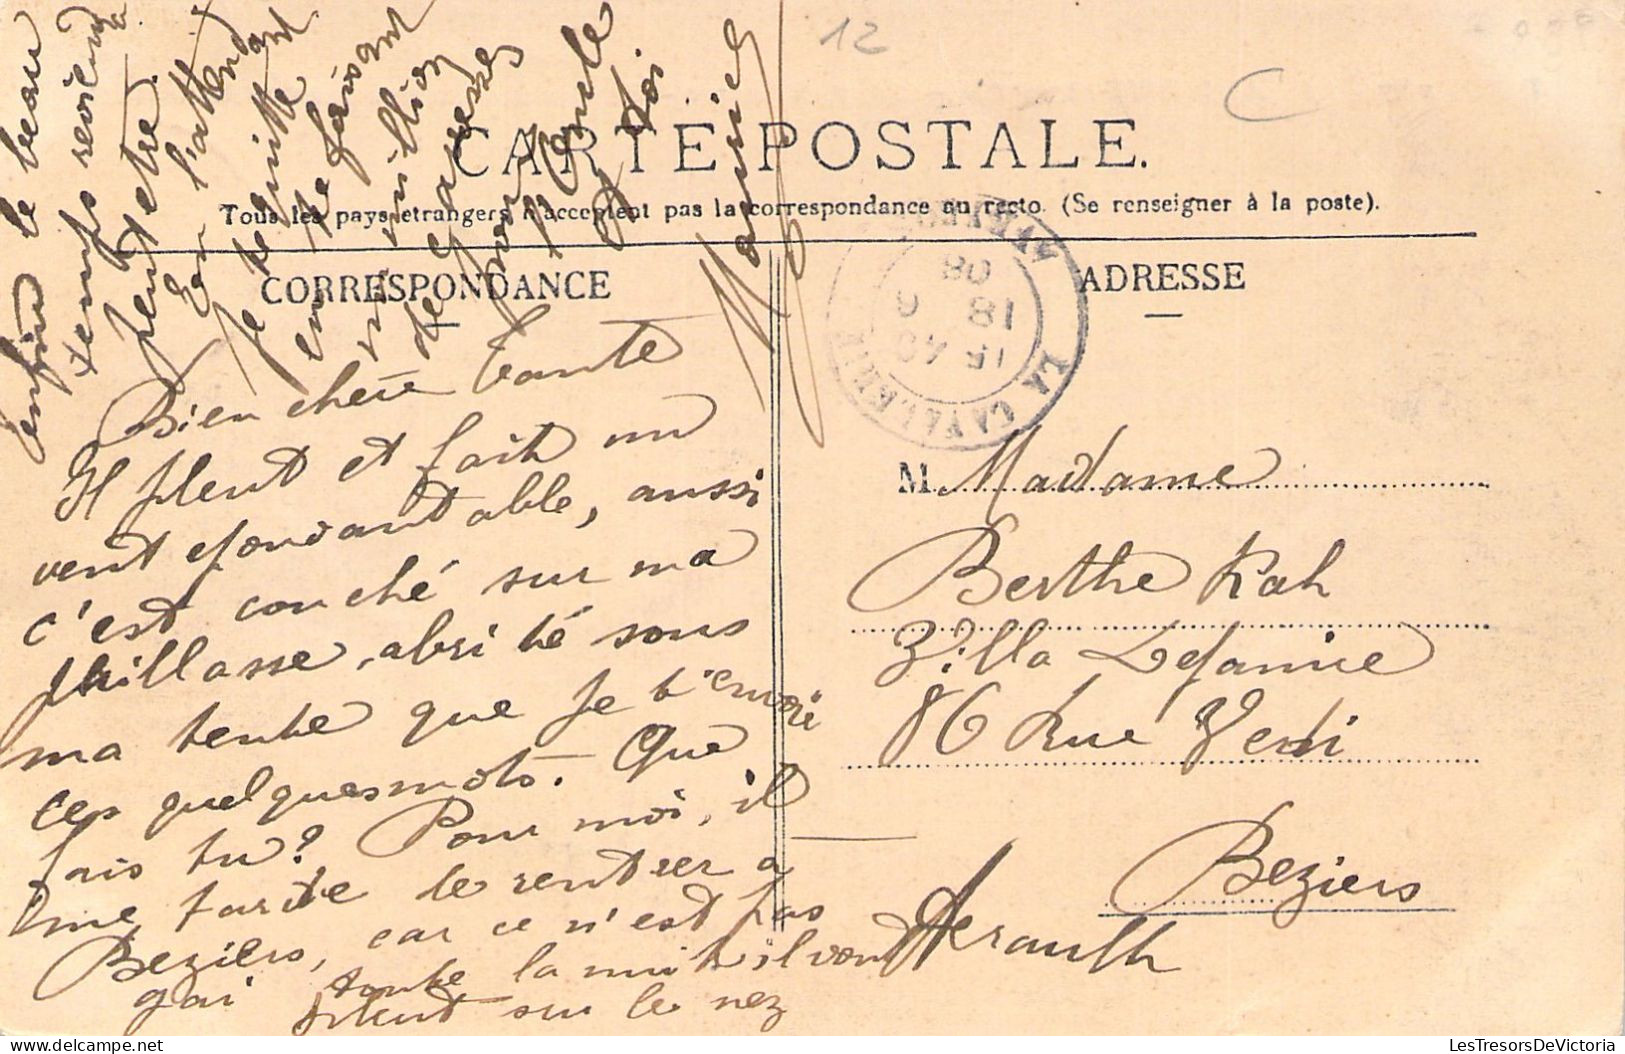 12
C
CARTE POSTALE.
Tous les pays etrangers n'acceptent pas la correspondance au recto. (Se renseigner à la poste).
CORRESPONDANCE
ADRESSE
Bien chère tante
Il pleut et fait un
vent épouvantable, aussi
c'est couché sur ma
paillasse, abrité sous
ma tente que je t'envoie
ces quelques mots. Que
fais tu? Pour moi, il
me tarde de rentrer a
Beziers, car ce n'est pas
gai toute la nuit il vous
pleut sur le nez
enfin le beau
temps reviendra
peut etre.
En l'attendant
je te quitte
en te faisant
un million
de caresses
pour l'Oncle
& toi
Maurice
LA CAVALERIE
AVEYRON
15 40
18 6
08
M. Madame
Berthe Rah
Villa Lefanie
86 Rue Verdi
Beziers
Herault
LesTresorsDeVictoria